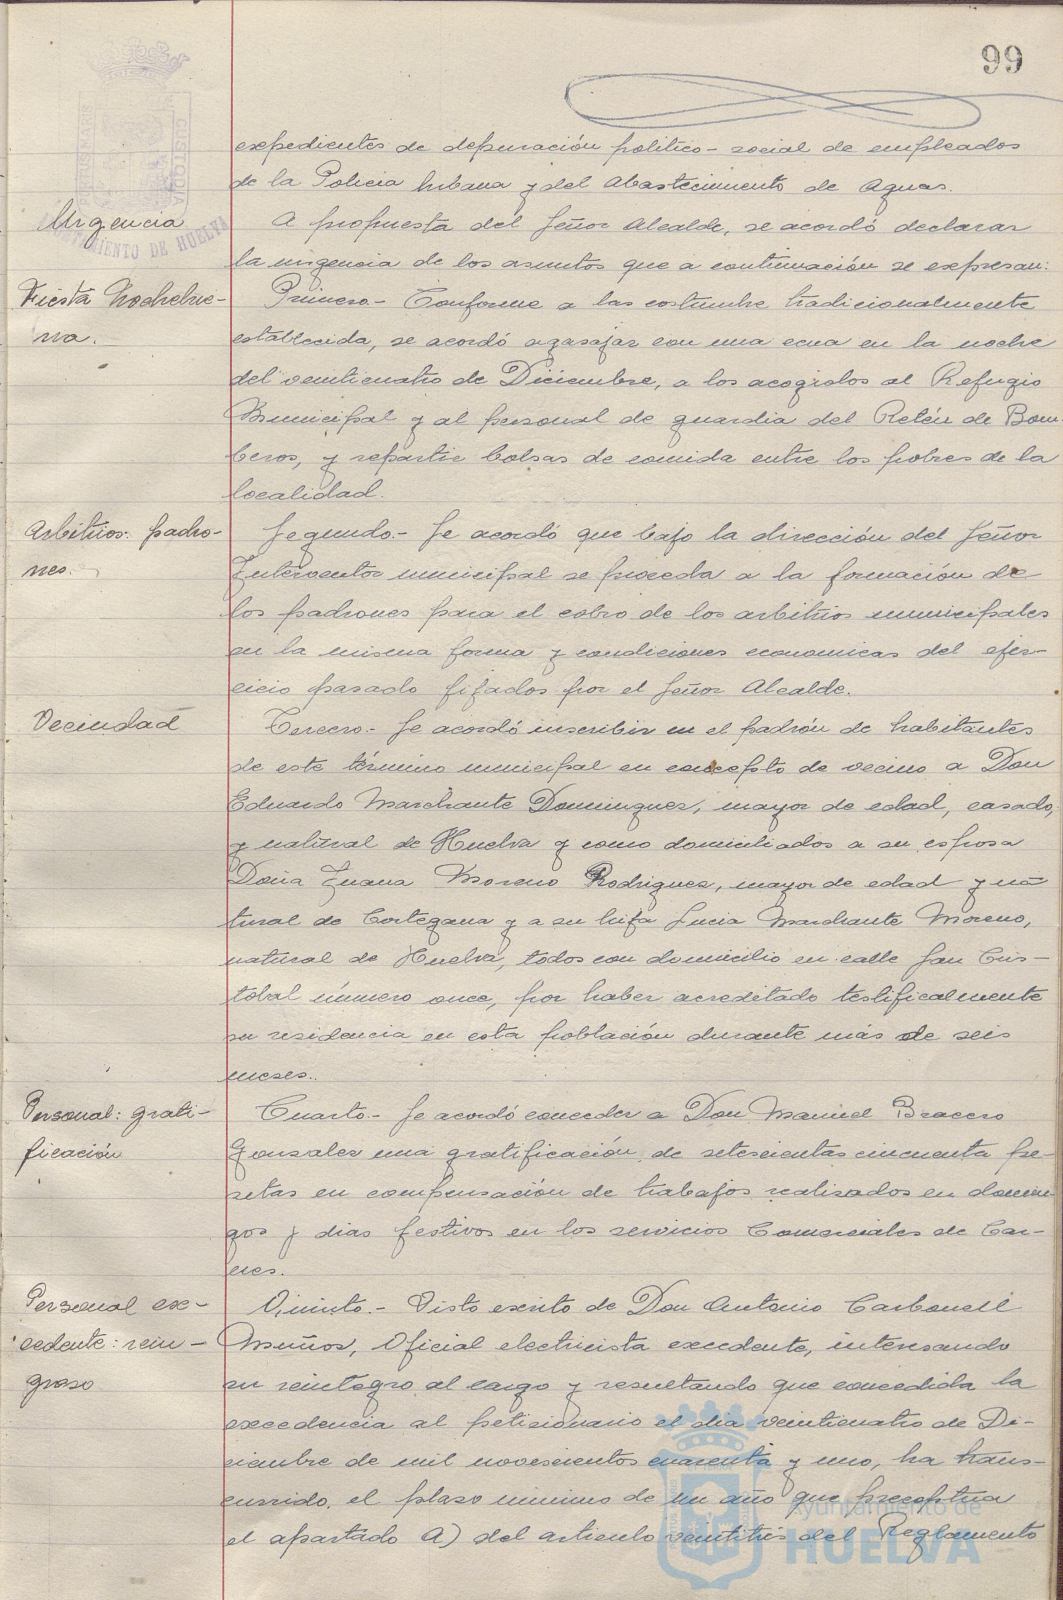 99
expedientes de depuración político-social de empleados
de la Policia Urbana y del Abastecimiento de Aguas.
Urgencia
A propuesta del Señor Alcalde, se acordó declarar
la urgencia de los asuntos que a continuación se expresan:
Fiesta Nochebue-
na.
Primero.- Conforme a las costumbre tradicionalmente
establecida, se acordó agasajar con una cena en la noche
del veinticuatro de Diciembre, a los acogidos al Refugio
Municipal y al personal de guardia del Retén de Bom-
beros, y repartir bolsas de comida entre los pobres de la
localidad.
Arbitrios: padro-
nes.
Segundo.- Se acordó que bajo la dirección del Señor
Interventor municipal se proceda a la formación de
los padrones para el cobro de los arbitrios municipales
en la misma forma y condiciones economicas del ejer-
cicio pasado fijados por el Señor Alcalde.
Vecindad
Tercero.- Se acordó inscribir en el padrón de habitantes
de este término municipal en concepto de vecino a Don
Eduardo Marchante Dominguez, mayor de edad, casado,
y natural de Huelva y como domiciliados a su esposa
Doña Juana Moreno Rodriguez, mayor de edad y na-
tural de Cortegana y a su hija Lucia Marchante Moreno,
natural de Huelva, todos con domicilio en calle San Cris-
tobal número once, por haber acreditado testificalmente
su residencia en esta población durante más de seis
meses.
Personal: grati-
ficación
Cuarto.- Se acordó conceder a Don Manuel Bracero
Gonzalez una gratificación de setescientas cincuenta pe-
setas en compensación de trabajos realizados en domin-
gos y dias festivos en los servicios Comerciales de Car-
nes.
Personal ex-
cedente: rein-
greso
Quinto.- Visto escrito de Don Antonio Carbonell
Muñoz, Oficial electricista excedente, interesando
su reintegro al cargo y resultando que concedida la
excedencia al peticionario el dia veinticuatro de Di-
ciembre de mil novescientos cuarenta y uno, ha trans-
currido el plazo minimo de un año que preceptua
el apartado A) del articulo veintitrés del Reglamento
AYUNTAMIENTO DE HUELVA
PORTUS MARIS
CUSTODIA
Ayuntamiento de
HUELVA